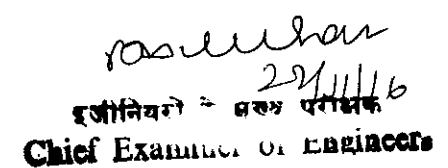 22/11/16
इंजीनियरों मुख्य परीक्षक
Chief Examiner of Engineers